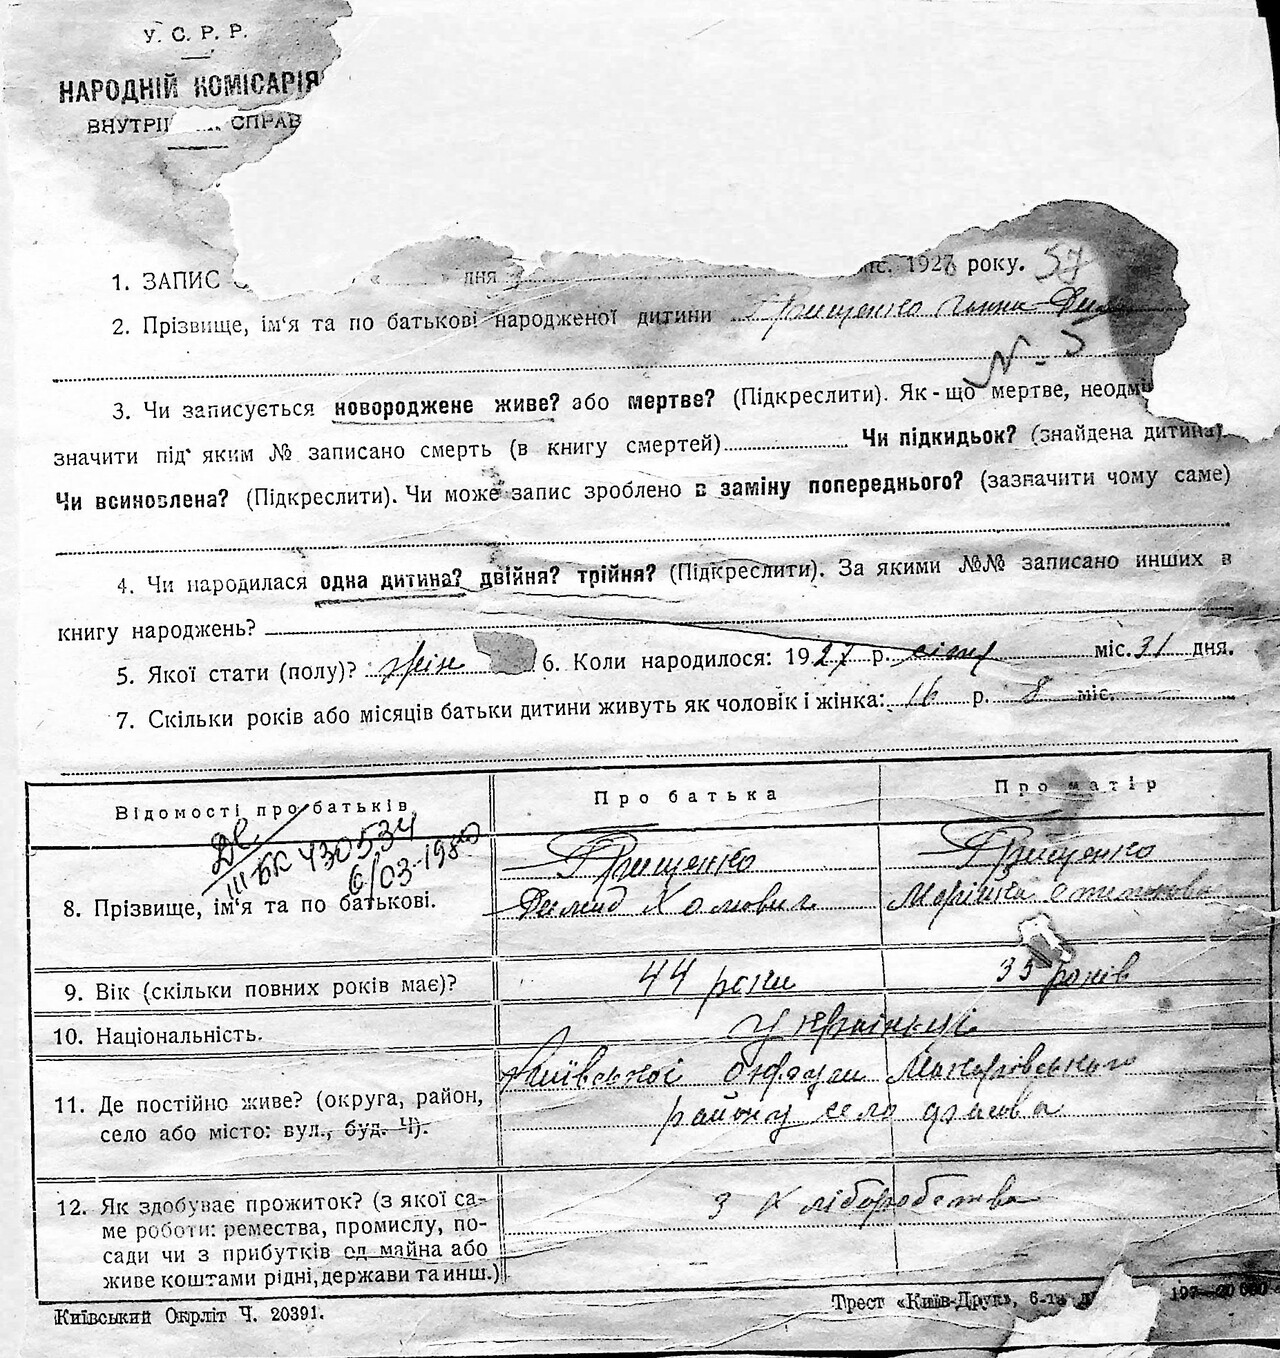 У. С. Р. Р.
НАРОДНІЙ КОМІСАРІЯ
ВНУТРІ СПРАВ
1. ЗАПИС « » дня міс. 1928 року. 57
2. Прізвище, ім'я та по батькові народженої дитини Грищенко Ганна
№ 5
3. Чи записується новороджене живе? або мертве? (Підкреслити). Як-що мертве, неодм
значити під яким № записано смерть (в книгу смертей) Чи підкидьок? (знайдена дитина).
Чи всиновлена? (Підкреслити). Чи може запис зроблено в заміну попереднього? (зазначити чому саме)
4. Чи народилася одна дитина? двійня? трійня? (Підкреслити). За якими №№ записано инших в
книгу народжень?
5. Якої стати (полу)? жін 6. Коли народилося: 1927 р. січн міс. 31 дня.
7. Скільки років або місяців батьки дитини живуть як чоловік і жінка: 16 р. 8 міс.
Відомості про батьків Про батька Про матір
III БК 430534
6/03-1980
8. Прізвище, ім'я та по батькові. Грищенко Грищенко
Демид Хомович Марійка Степанова
9. Вік (скільки повних років має)? 44 роки 35 років
10. Національність. Українці
11. Де постійно живе? (округа, район, село або місто: вул., буд. Ч). Київської округи Макарівського
району село
12. Як здобуває прожиток? (з якої са-
ме роботи: ремества, промислу, по-
сади чи з прибутків од майна або
живе коштами рідні, держави та инш.) З хліборобства
Київський Окрліт Ч. 20391. Трест «Київ-Друк», 6-та д